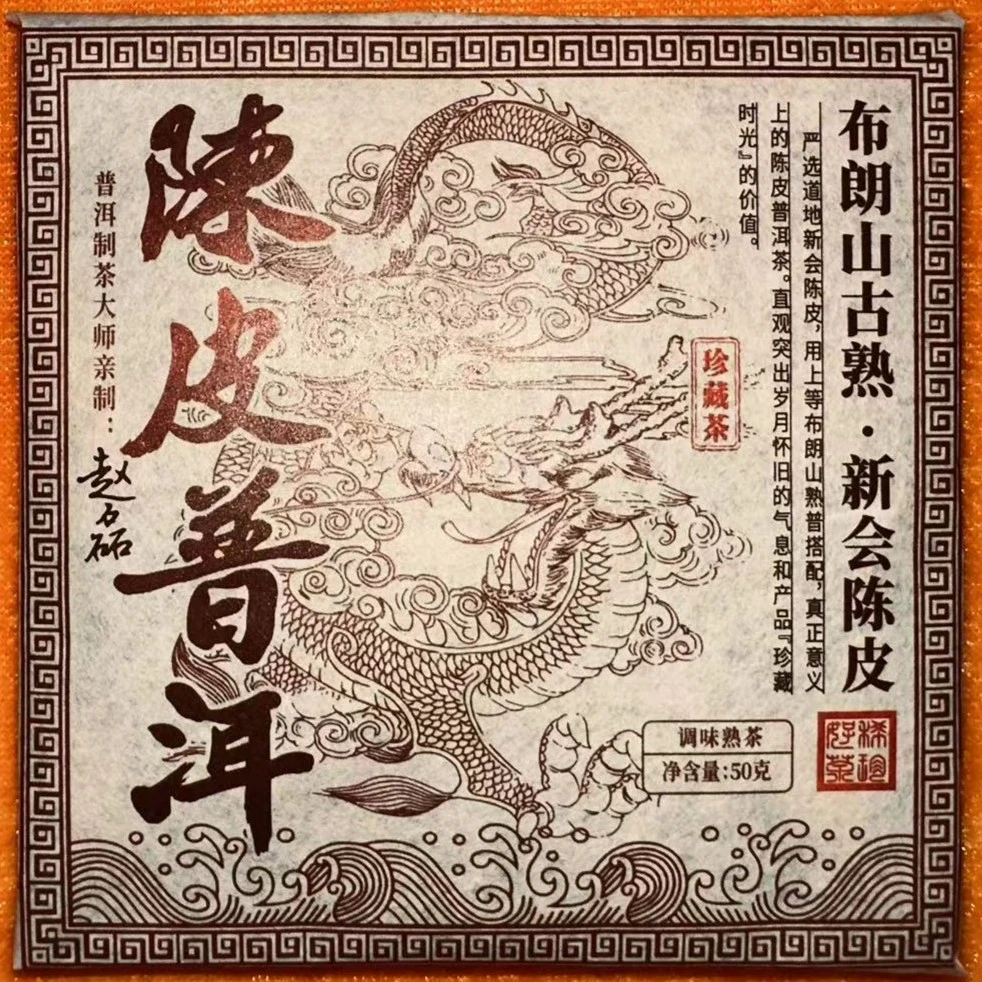 布朗山古熟·新会陈皮
严选道地新会陈皮，用上等布朗山熟普搭配，真正意义
上的陈皮普洱茶。直观突出岁月怀旧的气息和产品『珍藏
时光』的价值。
珍藏茶
调味熟茶
净含量:50克
陳皮普洱
普洱制茶大师亲制：
赵磊